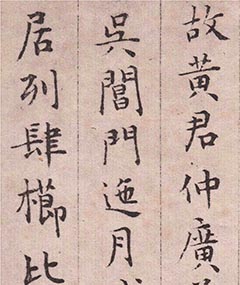 故黃君仲廣
吳閶門迤月
居列肆櫛比